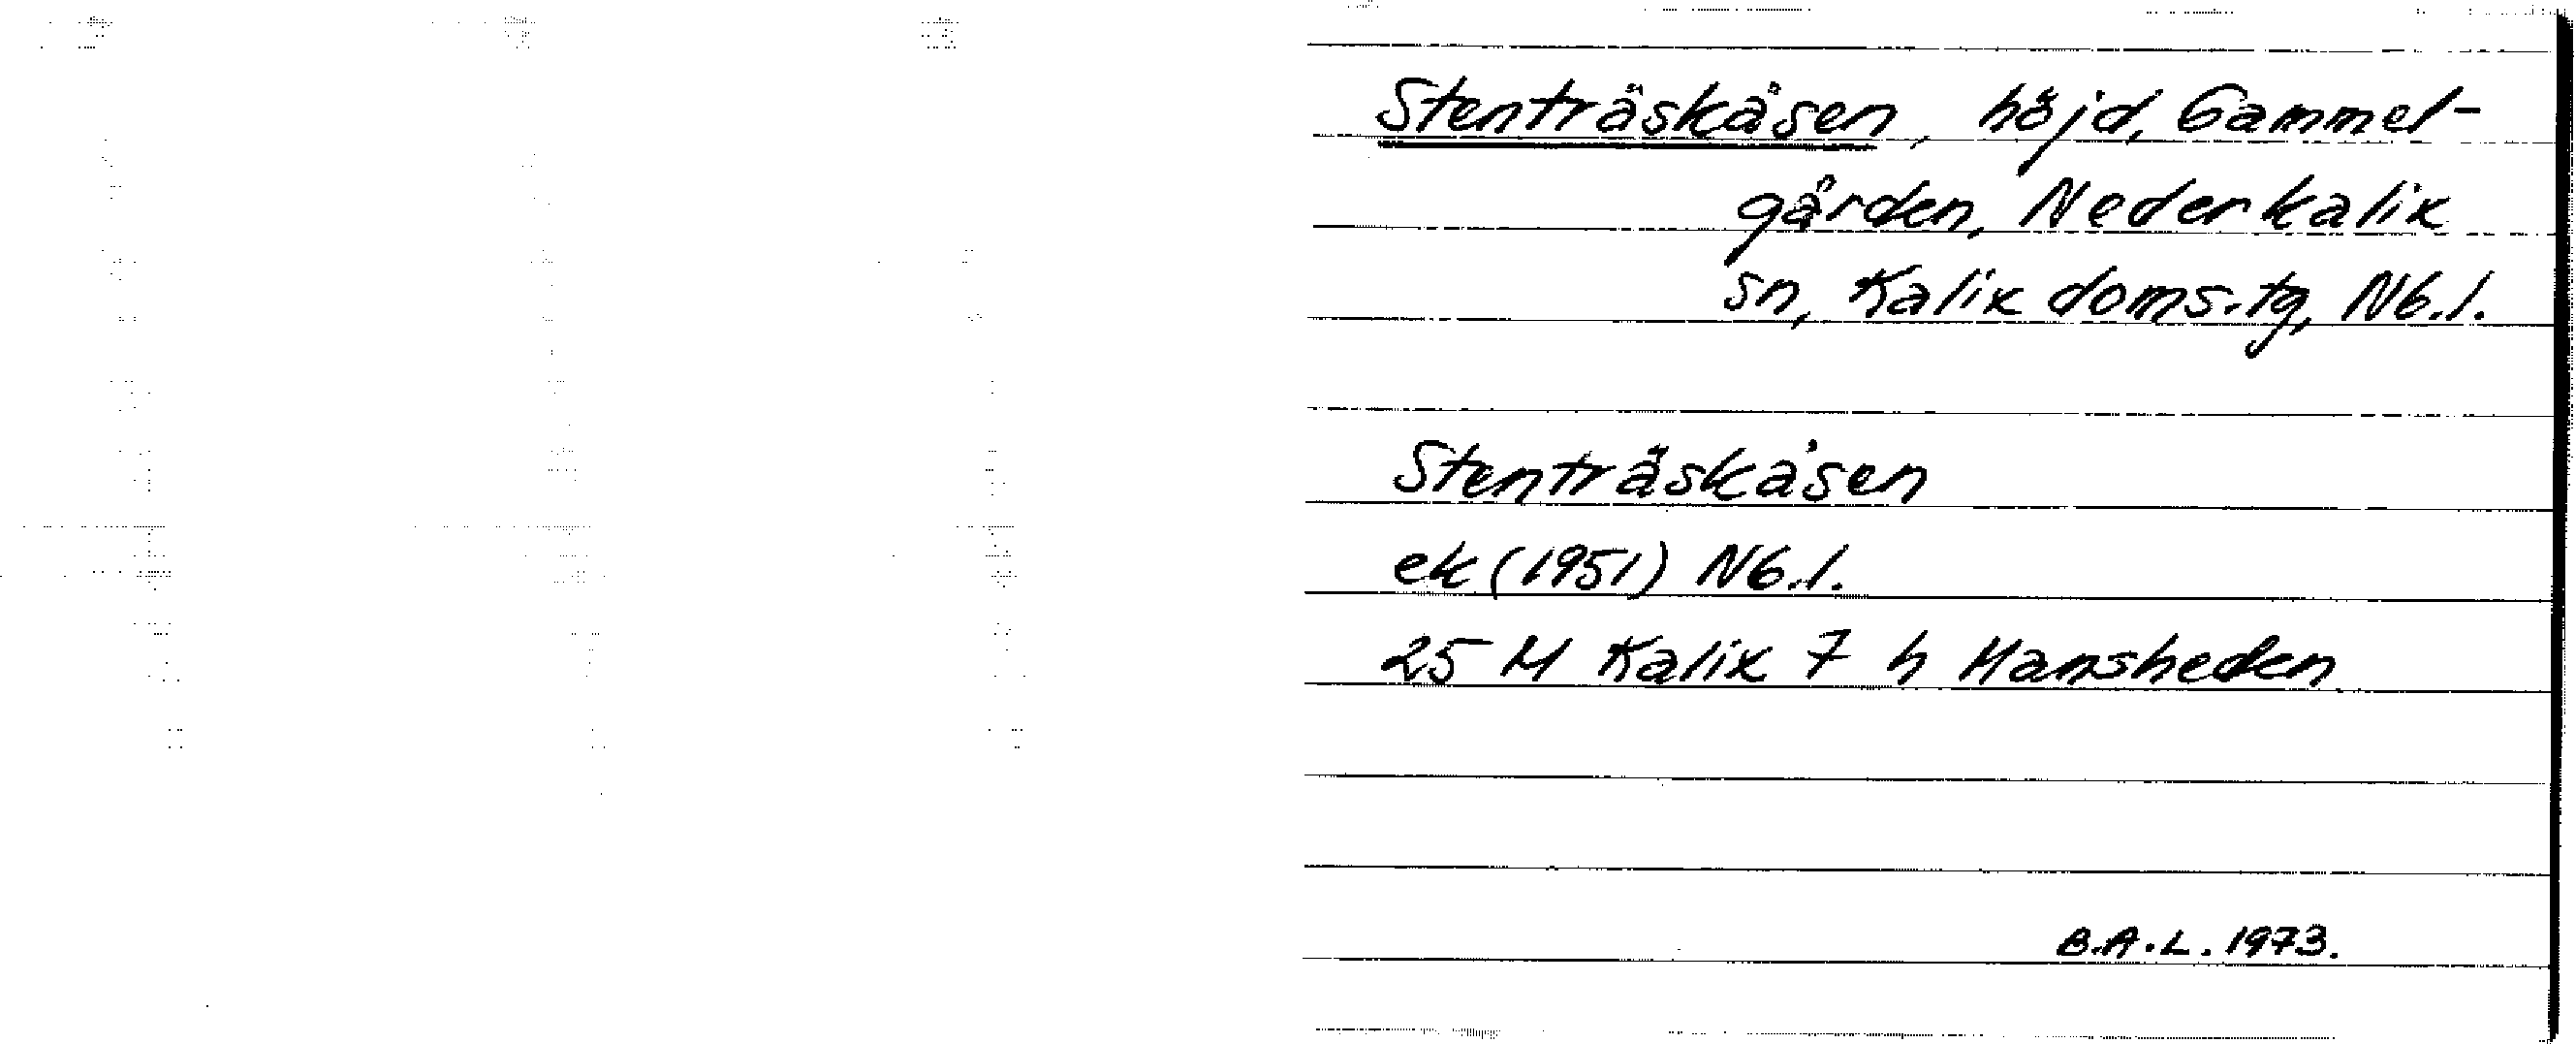 Stenträskåsen, höjd, Gammel-
gården, Nederkalix
sn, Kalix doms.tg, Nb.l.
Stenträskåsen
ek (1951) Nb.l.
25 M Kalix 7 h Mansheden
B.A.L. 1973.